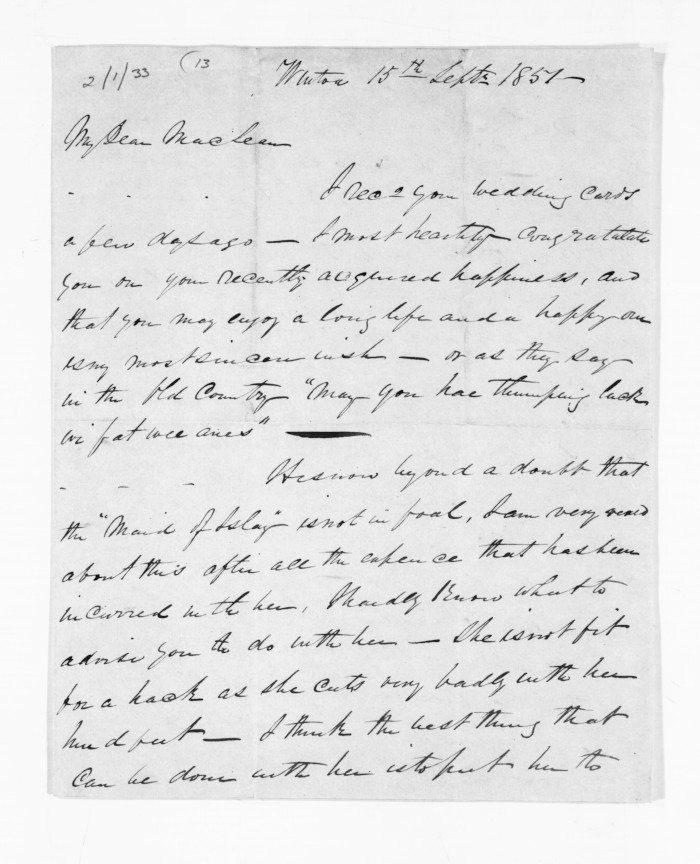 2/1/33 (13
Winton 15th Septr 1851 —
My Dear MacLean
I recd your wedding cards
a few days ago — I most heartily congratulate
you on your recently acquired happiness, and
that you may enjoy a long life and a happy one
is my most sincere wish — or as they say
in the Old Country "May you hae thumping luck
wi fat wee anes" —
It is now beyond a doubt that
the "Maid of Islay" is not in foal, I am very vexed
about this after all the expence that has been
incurred with her, I hardly know what to
advise you to do with her — She is not fit
for a hack as she cuts very badly with her
hind feet — I think the best thing that
can be done with her is to put her to